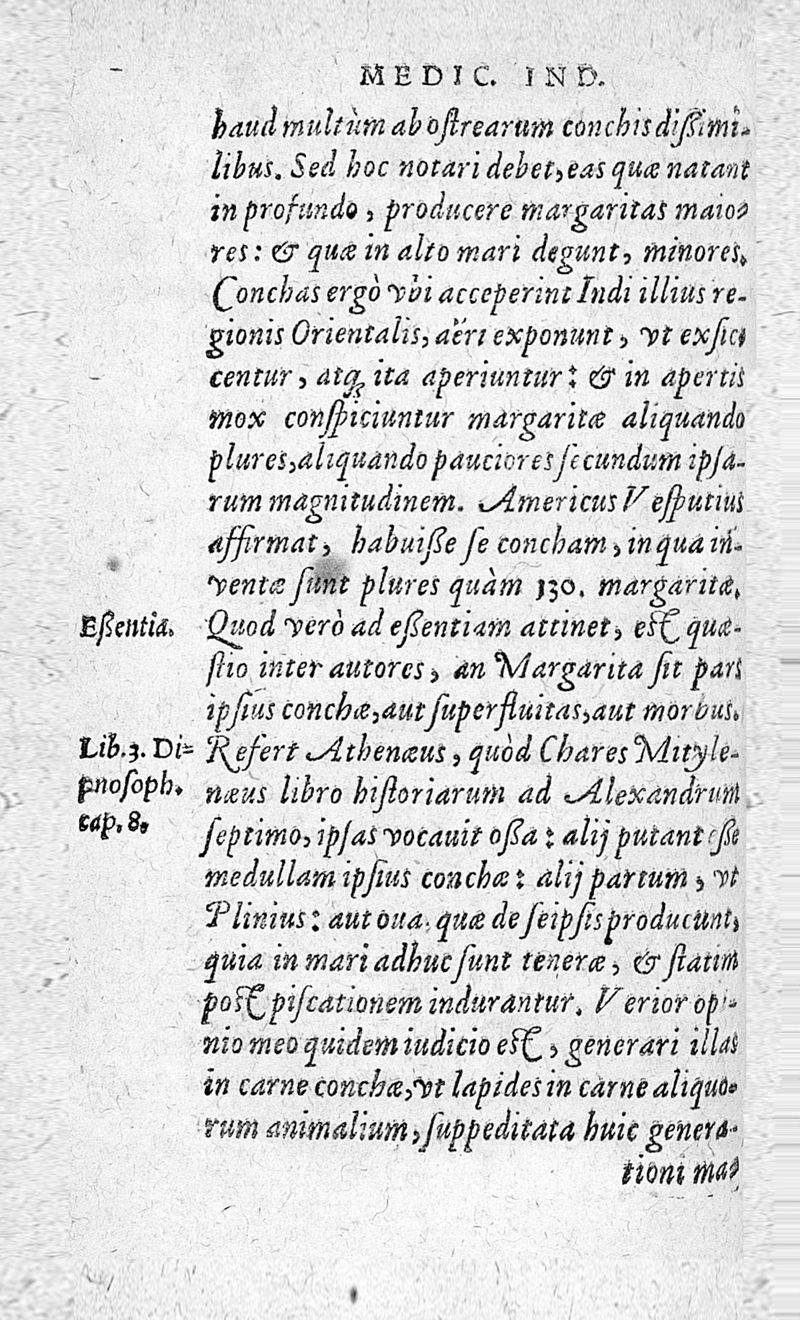 MEDIC. IND.
haud multùm ab ostrearum conchis dißimi-
libus. Sed hoc notari debet, eas quæ natant
in profundo, producere margaritas maio-
res: & quæ in alto mari degunt, minores.
Conchas ergò vbi acceperint Indi illius re-
gionis Orientalis, aëri exponunt, vt exsic-
centur, atq; ita aperiuntur: & in apertis
mox conspiciuntur margaritæ aliquando
plures, aliquando pauciores secundum ipsa-
rum magnitudinem. Americus Vesputius
affirmat, habuiße se concham, in qua in-
ventæ sunt plures quàm 130. margaritæ.
Eßentia.
Quod verò ad eßentiam attinet, est quæ-
stio inter autores, an Margarita sit pars
ipsius conchæ, aut superfluitas, aut morbus.
Lib. 3. Di-
pnosoph.
cap. 8.
Refert Athenæus, quòd Chares Mityle-
næus libro historiarum ad Alexandrum
septimo, ipsas vocauit oßa: alij putant eße
medullam ipsius conchæ: alij partum, vt
Plinius: aut oua, quæ de seipsis producunt,
quia in mari adhuc sunt teneræ, & statim
post piscationem indurantur. Verior opi-
nio meo quidem iudicio est, generari illas
in carne conchæ, vt lapides in carne aliquo-
rum animalium, suppeditata huic genera-
tioni ma-